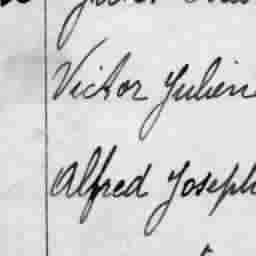 Victor Julien
Alfred Joseph